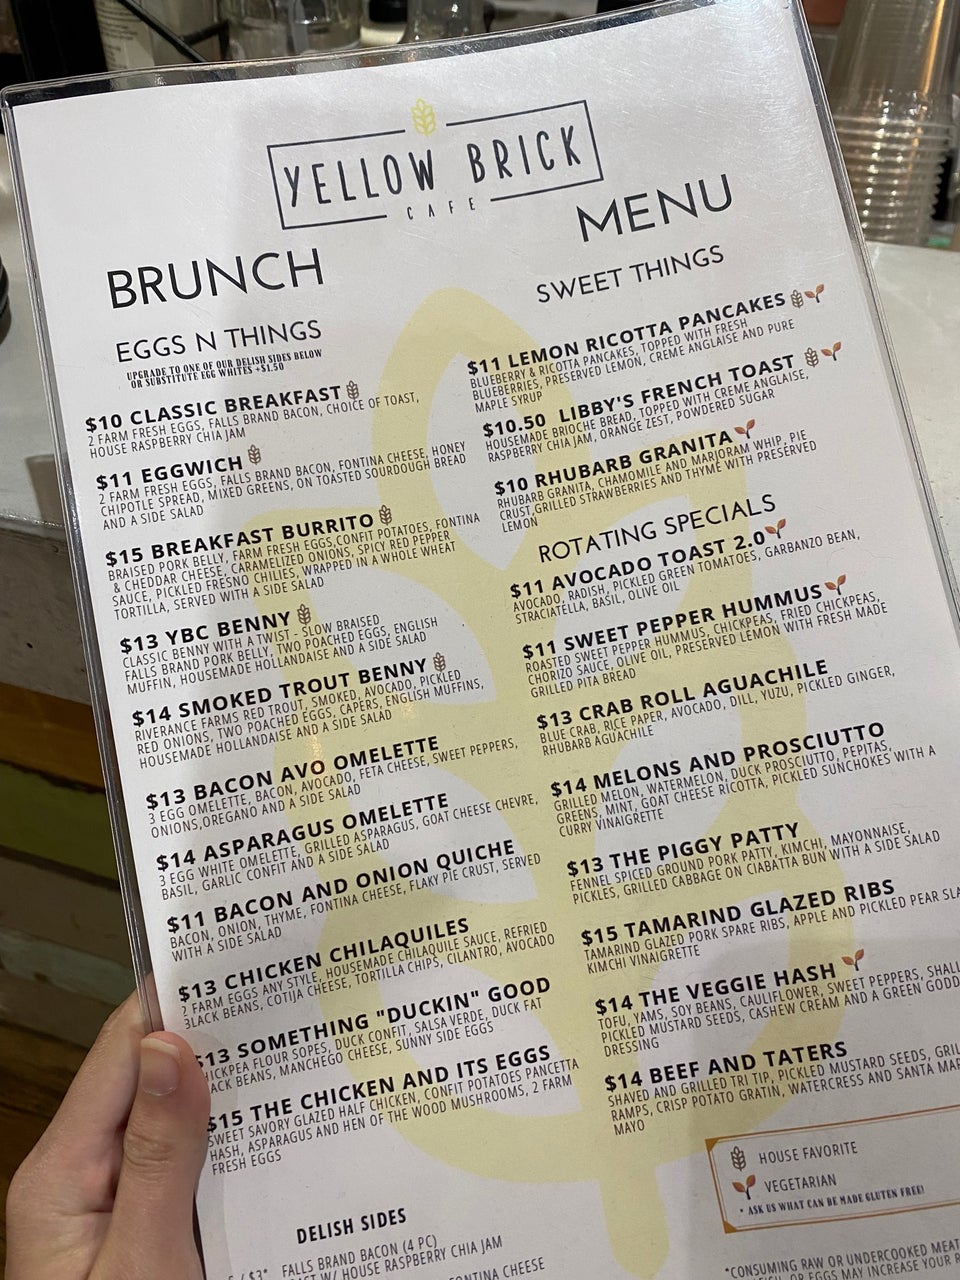 YELLOW BRICK
CAFE
BRUNCH
MENU
EGGS N THINGS
UPGRADE TO ONE OF OUR DELISH SIDES BELOW
OR SUBSTITUTE EGG WHITES +$1.50
$10 CLASSIC BREAKFAST
2 FARM FRESH EGGS, FALLS BRAND BACON, CHOICE OF TOAST,
HOUSE RASPBERRY CHIA JAM
$11 EGGWICH
2 FARM FRESH EGGS, FALLS BRAND BACON, FONTINA CHEESE, HONEY
CHIPOTLE SPREAD, MIXED GREENS, ON TOASTED SOURDOUGH BREAD
AND A SIDE SALAD
$15 BREAKFAST BURRITO
BRAISED PORK BELLY, FARM FRESH EGGS,CONFIT POTATOES, FONTINA
& CHEDDAR CHEESE, CARAMELIZED ONIONS, SPICY RED PEPPER
SAUCE, PICKLED FRESNO CHILIES, WRAPPED IN A WHOLE WHEAT
TORTILLA, SERVED WITH A SIDE SALAD
$13 YBC BENNY
CLASSIC BENNY WITH A TWIST - SLOW BRAISED
FALLS BRAND PORK BELLY, TWO POACHED EGGS, ENGLISH
MUFFIN, HOUSEMADE HOLLANDAISE AND A SIDE SALAD
$14 SMOKED TROUT BENNY
RIVERANCE FARMS RED TROUT, SMOKED, AVOCADO, PICKLED
RED ONIONS, TWO POACHED EGGS, CAPERS, ENGLISH MUFFINS,
HOUSEMADE HOLLANDAISE AND A SIDE SALAD
$13 BACON AVO OMELETTE
3 EGG OMELETTE, BACON, AVOCADO, FETA CHEESE, SWEET PEPPERS,
ONIONS,OREGANO AND A SIDE SALAD
$14 ASPARAGUS OMELETTE
3 EGG WHITE OMELETTE, GRILLED ASPARAGUS, GOAT CHEESE CHEVRE,
BASIL, GARLIC CONFIT AND A SIDE SALAD
$11 BACON AND ONION QUICHE
BACON, ONION, THYME, FONTINA CHEESE, FLAKY PIE CRUST, SERVED
WITH A SIDE SALAD
$13 CHICKEN CHILAQUILES
2 FARM EGGS ANY STYLE, HOUSEMADE CHILAQUILE SAUCE, REFRIED
BLACK BEANS, COTIJA CHEESE, TORTILLA CHIPS, CILANTRO, AVOCADO
$13 SOMETHING "DUCKIN" GOOD
CHICKPEA FLOUR SOPES, DUCK CONFIT, SALSA VERDE, DUCK FAT
BLACK BEANS, MANCHEGO CHEESE, SUNNY SIDE EGGS
$15 THE CHICKEN AND ITS EGGS
SWEET SAVORY GLAZED HALF CHICKEN, CONFIT POTATOES PANCETTA
HASH, ASPARAGUS AND HEN OF THE WOOD MUSHROOMS, 2 FARM
FRESH EGGS
DELISH SIDES
FALLS BRAND BACON (4 PC)
W/ HOUSE RASPBERRY CHIA JAM
FONTINA CHEESE
SWEET THINGS
$11 LEMON RICOTTA PANCAKES
BLUEBERRY & RICOTTA PANCAKES, TOPPED WITH FRESH
BLUEBERRIES, PRESERVED LEMON, CREME ANGLAISE AND PURE
MAPLE SYRUP
$10.50 LIBBY'S FRENCH TOAST
HOUSEMADE BRIOCHE BREAD, TOPPED WITH CREME ANGLAISE,
RASPBERRY CHIA JAM, ORANGE ZEST, POWDERED SUGAR
$10 RHUBARB GRANITA
RHUBARB GRANITA, CHAMOMILE AND MARJORAM WHIP, PIE
CRUST,GRILLED STRAWBERRIES AND THYME WITH PRESERVED
LEMON
ROTATING SPECIALS
$11 AVOCADO TOAST 2.0
AVOCADO, RADISH, PICKLED GREEN TOMATOES, GARBANZO BEAN,
STRACIATELLA, BASIL, OLIVE OIL
$11 SWEET PEPPER HUMMUS
ROASTED SWEET PEPPER HUMMUS, CHICKPEAS, FRIED CHICKPEAS,
CHORIZO SAUCE, OLIVE OIL, PRESERVED LEMON WITH FRESH MADE
GRILLED PITA BREAD
$13 CRAB ROLL AGUACHILE
BLUE CRAB, RICE PAPER, AVOCADO, DILL, YUZU, PICKLED GINGER,
RHUBARB AGUACHILE
$14 MELONS AND PROSCIUTTO
GRILLED MELON, WATERMELON, DUCK PROSCIUTTO, PEPITAS,
GREENS, MINT, GOAT CHEESE RICOTTA, PICKLED SUNCHOKES WITH A
CURRY VINAIGRETTE
$13 THE PIGGY PATTY
FENNEL SPICED GROUND PORK PATTY, KIMCHI, MAYONNAISE,
PICKLES, GRILLED CABBAGE ON CIABATTA BUN WITH A SIDE SALAD
$15 TAMARIND GLAZED RIBS
TAMARIND GLAZED PORK SPARE RIBS, APPLE AND PICKLED PEAR SLA
KIMCHI VINAIGRETTE
$14 THE VEGGIE HASH
TOFU, YAMS, SOY BEANS, CAULIFLOWER, SWEET PEPPERS, SHALL
PICKLED MUSTARD SEEDS, CASHEW CREAM AND A GREEN GODD
DRESSING
$14 BEEF AND TATERS
SHAVED AND GRILLED TRI TIP, PICKLED MUSTARD SEEDS, GRIL
RAMPS, CRISP POTATO GRATIN, WATERCRESS AND SANTA MAR
MAYO
HOUSE FAVORITE
VEGETARIAN
* ASK US WHAT CAN BE MADE GLUTEN FREE!
*CONSUMING RAW OR UNDERCOOKED MEAT
OR EGGS MAY INCREASE YOUR